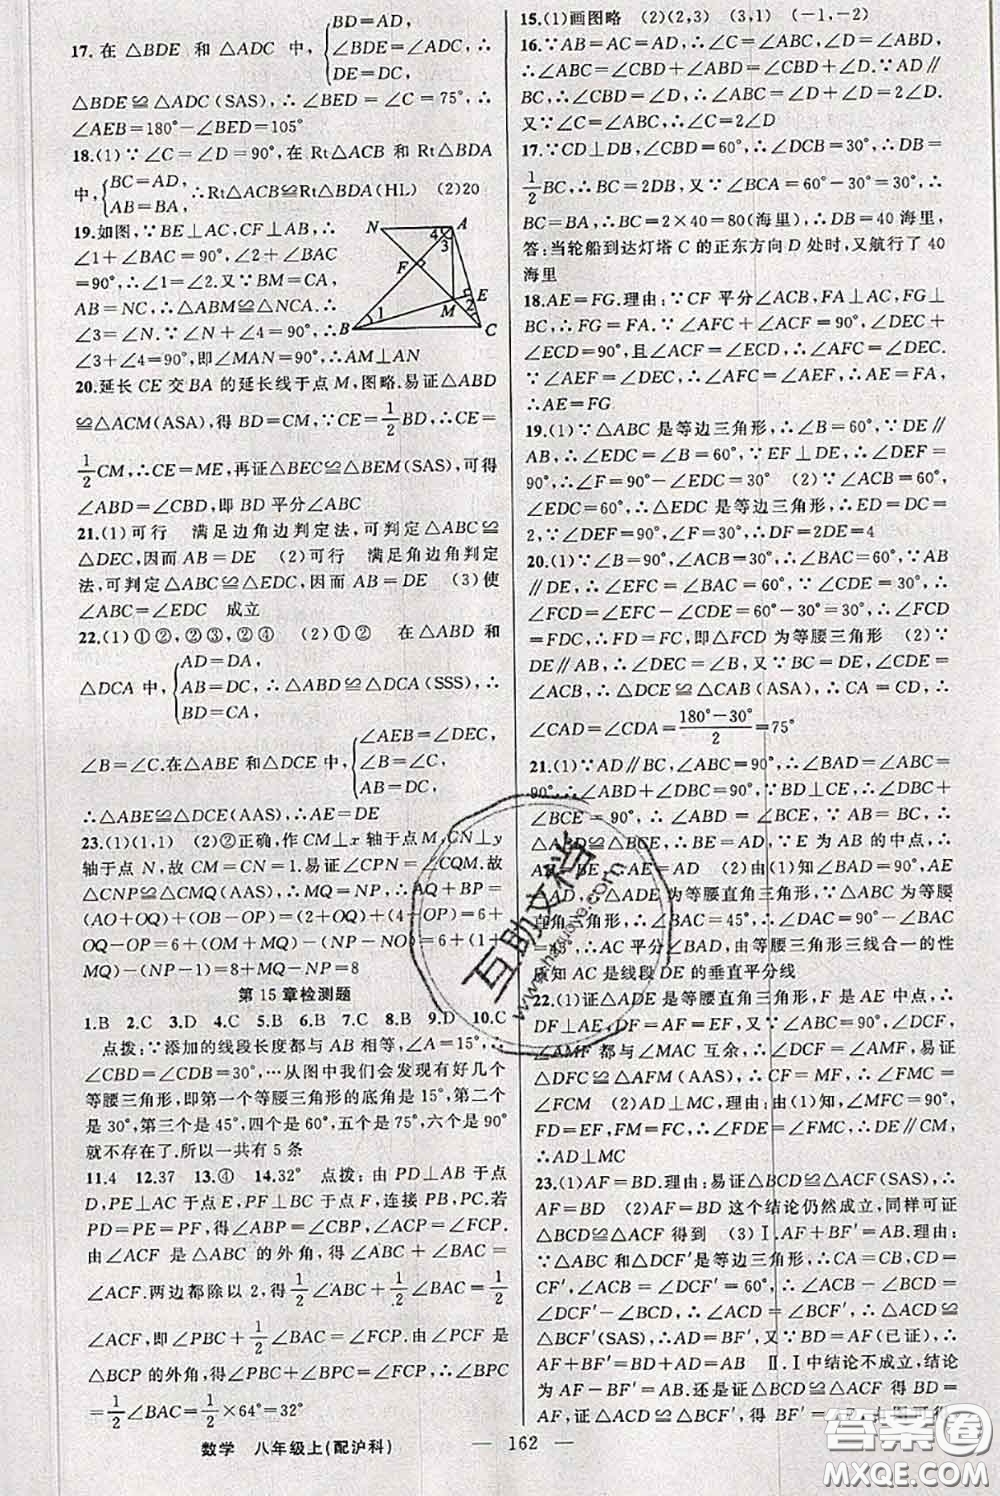 17.在 △BDE 和 △ADC 中,{BD=AD,
∠BDE=∠ADC,∴
DE=DC,
△BDE≌△ADC(SAS),∴∠BED=∠C=75°,∴
∠AEB=180°-∠BED=105°
18.(1)∵∠C=∠D=90°,在 Rt△ACB 和 Rt△BDA
中,{BC=AD,
AB=BA,∴Rt△ACB≌Rt△BDA(HL) (2)20
19.如图,∵BE⊥AC,CF⊥AB,∴
∠1+∠BAC=90°,∠2+∠BAC=
90°,∴∠1=∠2.又∵BM=CA,
AB=NC,∴△ABM≌△NCA.∴
∠3=∠N.∵∠N+∠4=90°,∴
∠3+∠4=90°,即∠MAN=90°,∴AM⊥AN
N A 4 3 F E M 2 B 1 C
20.延长 CE 交 BA 的延长线于点 M,图略.易证△ABD
≌△ACM(ASA),得 BD=CM,∵CE=1/2BD,∴CE=
1/2CM,∴CE=ME,再证△BEC≌△BEM(SAS),可得
∠ABD=∠CBD,即 BD 平分∠ABC
21.(1)可行 满足边角边判定法,可判定△ABC≌
△DEC,因而 AB=DE (2)可行 满足角边角判定
法,可判定△ABC≌△EDC,因而 AB=DE (3)使
∠ABC=∠EDC 成立
22.(1)①②,②③,②④ (2)①② 在△ABD 和
△DCA 中,{AD=DA,
AB=DC,∴△ABD≌△DCA(SSS),∴
BD=CA,
∠B=∠C.在△ABE 和△DCE 中,{∠AEB=∠DEC,
∠B=∠C,
AB=DC,
∴△ABE≌△DCE(AAS),∴AE=DE
23.(1)(1,1) (2)②正确,作 CM⊥x 轴于点 M,CN⊥y
轴于点 N,故 CM=CN=1.易证∠CPN=∠CQM.故
△CNP≌△CMQ(AAS),∴MQ=NP,∴AQ+BP=
(AO+OQ)+(OB-OP)=(2+OQ)+(4-OP)=6+
OQ-OP=6+(OM+MQ)-(NP+ON)=6+(1+
MQ)-(NP-1)=8+MQ-NP=8
第 15 章检测题
1.B 2.C 3.D 4.C 5.B 6.B 7.C 8.B 9.D 10.C
点拨:∵添加的线段长度都与 AB 相等,∠A=15°,∴
∠CBD=∠CDB=30°,…从图中我们会发现有好几个
等腰三角形,即第一个等腰三角形的底角是 15°,第二个
是 30°,第三个是 45°,四个是 60°,五个是 75°,六个是 90°
就不存在了.所以一共有 5 条
11.4 12.37 13.④ 14.32° 点拨:由 PD⊥AB 于点
D,PE⊥AC于点 E,PF⊥BC 于点 F,连接 PB,PC.若
PD=PE=PF,得∠ABP=∠CBP,∠ACP=∠FCP.
由∠ACF 是△ABC 的外角,得∠ABC+∠BAC=
∠ACF.两边都除以 2,得1/2∠ABC+1/2∠BAC=1/2
∠ACF,即∠PBC+1/2∠BAC=∠FCP.由∠PCF 是
△BCP 的外角,得∠PBC+∠BPC=∠FCP,∴∠BPC
=1/2∠BAC=1/2×64°=32°
15.(1)画图略 (2)(2,3) (3,1) (-1,-2)
16.∵AB=AC=AD,∴∠C=∠ABC,∠D=∠ABD,
∴∠ABC=∠CBD+∠ABD=∠CBD+∠D.∵AD∥
BC,∴∠CBD=∠D,∴∠ABC=∠D+∠D=2∠D.
又∵∠C=∠ABC,∴∠C=2∠D
17.∵CD⊥DB,∠CBD=60°,∴∠DCB=30°,∴DB=
1/2BC,∴BC=2DB,又∵∠BCA=60°-30°=30°,∴
BC=BA,∴BC=2×40=80(海里),∴DB=40 海里,
答:当轮船到达灯塔 C 的正东方向 D 处时,又航行了 40
海里
18.AE=FG.理由:∵CF 平分∠ACB,FA⊥AC,FG⊥
BC,∴FG=FA.∵∠AFC+∠ACF=90°,∠DEC+
∠ECD=90°,且∠ACF=∠ECD,∴∠AFC=∠DEC.
∵∠AEF=∠DEC,∴∠AFC=∠AEF,∴AE=FA,
∴AE=FG
19.(1)∵△ABC 是等边三角形,∴∠B=60°,∵DE∥
AB,∴∠EDC=∠B=60°,∵EF⊥DE,∴∠DEF=
90°,∴∠F=90°-∠EDC=30° (2)∵∠ACB=60°,
∠EDC=60°,∴△EDC 是等边三角形,∴ED=DC=
2,∵∠DEF=90°,∠F=30°,∴DF=2DE=4
20.(1)∵∠B=90°,∠ACB=30°,∴∠BAC=60°,∵AB
∥DE,∴∠EFC=∠BAC=60°,∵∠CDE=30°,∴
∠FCD=∠EFC-∠CDE=60°-30°=30°,∴∠FCD
=FDC,∴FD=FC,即△FCD 为等腰三角形 (2)∵
DE∥AB,∴∠DEC=∠B,又∵BC=DE,∠CDE=
∠ACB,∴△DCE≌△CAB(ASA),∴CA=CD,∴
∠CAD=∠CDA=(180°-30°)/2=75°
21.(1)∵AD∥BC,∠ABC=90°,∴∠BAD=∠ABC=
90°,∴∠ABD+∠DBC=90°,∵BD⊥CE,∴∠DBC
+∠BCE=90°,∴∠ABD=∠BCE,又∵AB=BC,∴
△ABD≌△BCE(ASA),∴BE=AD,∵E 为 AB 的中点,∴
AE=BE,∴AE=AD (2)由(1)知∠BAD=90°,AE
=AD,∴△ADE 为等腰直角三角形,∵△ABC 为等腰
直角三角形,∴∠BAC=45°,∴∠DAC=90°-∠BAC
=45°,∴AC 平分∠BAD,由等腰三角形三线合一的性
质知 AC 是线段 DE 的垂直平分线
22.(1)证△ADE 是等腰直角三角形,F 是 AE 中点,∴
DF⊥AE,DF=AF=EF,又∵∠ABC=90°,∠DCF,
∠AMF 都与∠MAC 互余,∴∠DCF=∠AMF,易证
△DFC≌△AFM(AAS),∴CF=MF,∴∠FMC=
∠FCM (2)AD⊥MC,理由:由(1)知,∠MFC=90°,
FD=EF,FM=FC,∴∠FDE=∠FMC,∴DE∥CM,
∴AD⊥MC
23.(1)AF=BD.理由:易证△BCD≌△ACF(SAS),∴
AF=BD (2)AF=BD 这个结论仍然成立,同样可证
△BCD≌△ACF 得到 (3)Ⅰ.AF+BF′=AB.理由:
∵△ABC 和△DCF′是等边三角形,∴CA=CB,CD=
CF′,∠ACB=∠DCF′=60°,∴∠ACB-∠BCD=
∠DCF′-∠BCD,∴∠ACD=∠BCF′,∴△ACD≌
△BCF′(SAS),∴AD=BF′,又∵BD=AF(已证),∴
AF+BF′=BD+AD=AB Ⅱ.Ⅰ中结论不成立,结论
为 AF-BF′=AB.还是证△BCD≌△ACF 得 BD=
数学 八年级上(配沪科) — 162 —
互助文档
www.hzujoye.com
答案圈
MXQE.COM